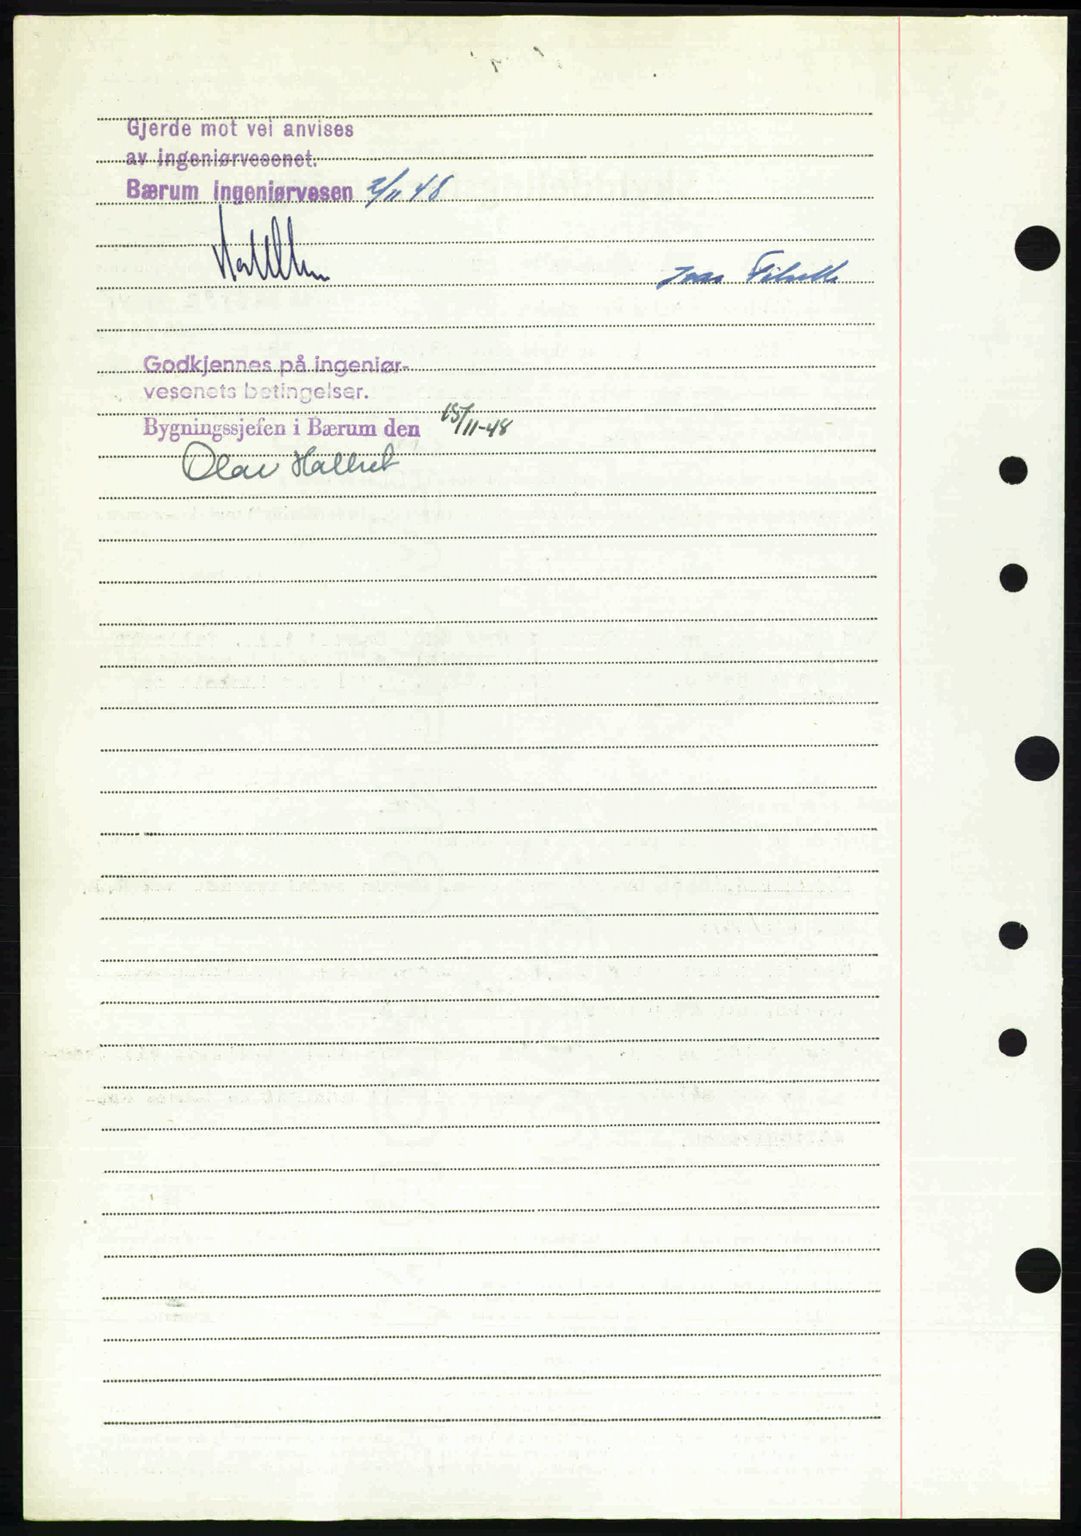 Gjerde mot vei anvises
av ingeniørvesenet.
Bærum ingeniørvesen 2/11 48
Godkjennes på ingeniør-
vesenets betingelser.
Bygningssjefen i Bærum den 15/11-48
Olav Hallset